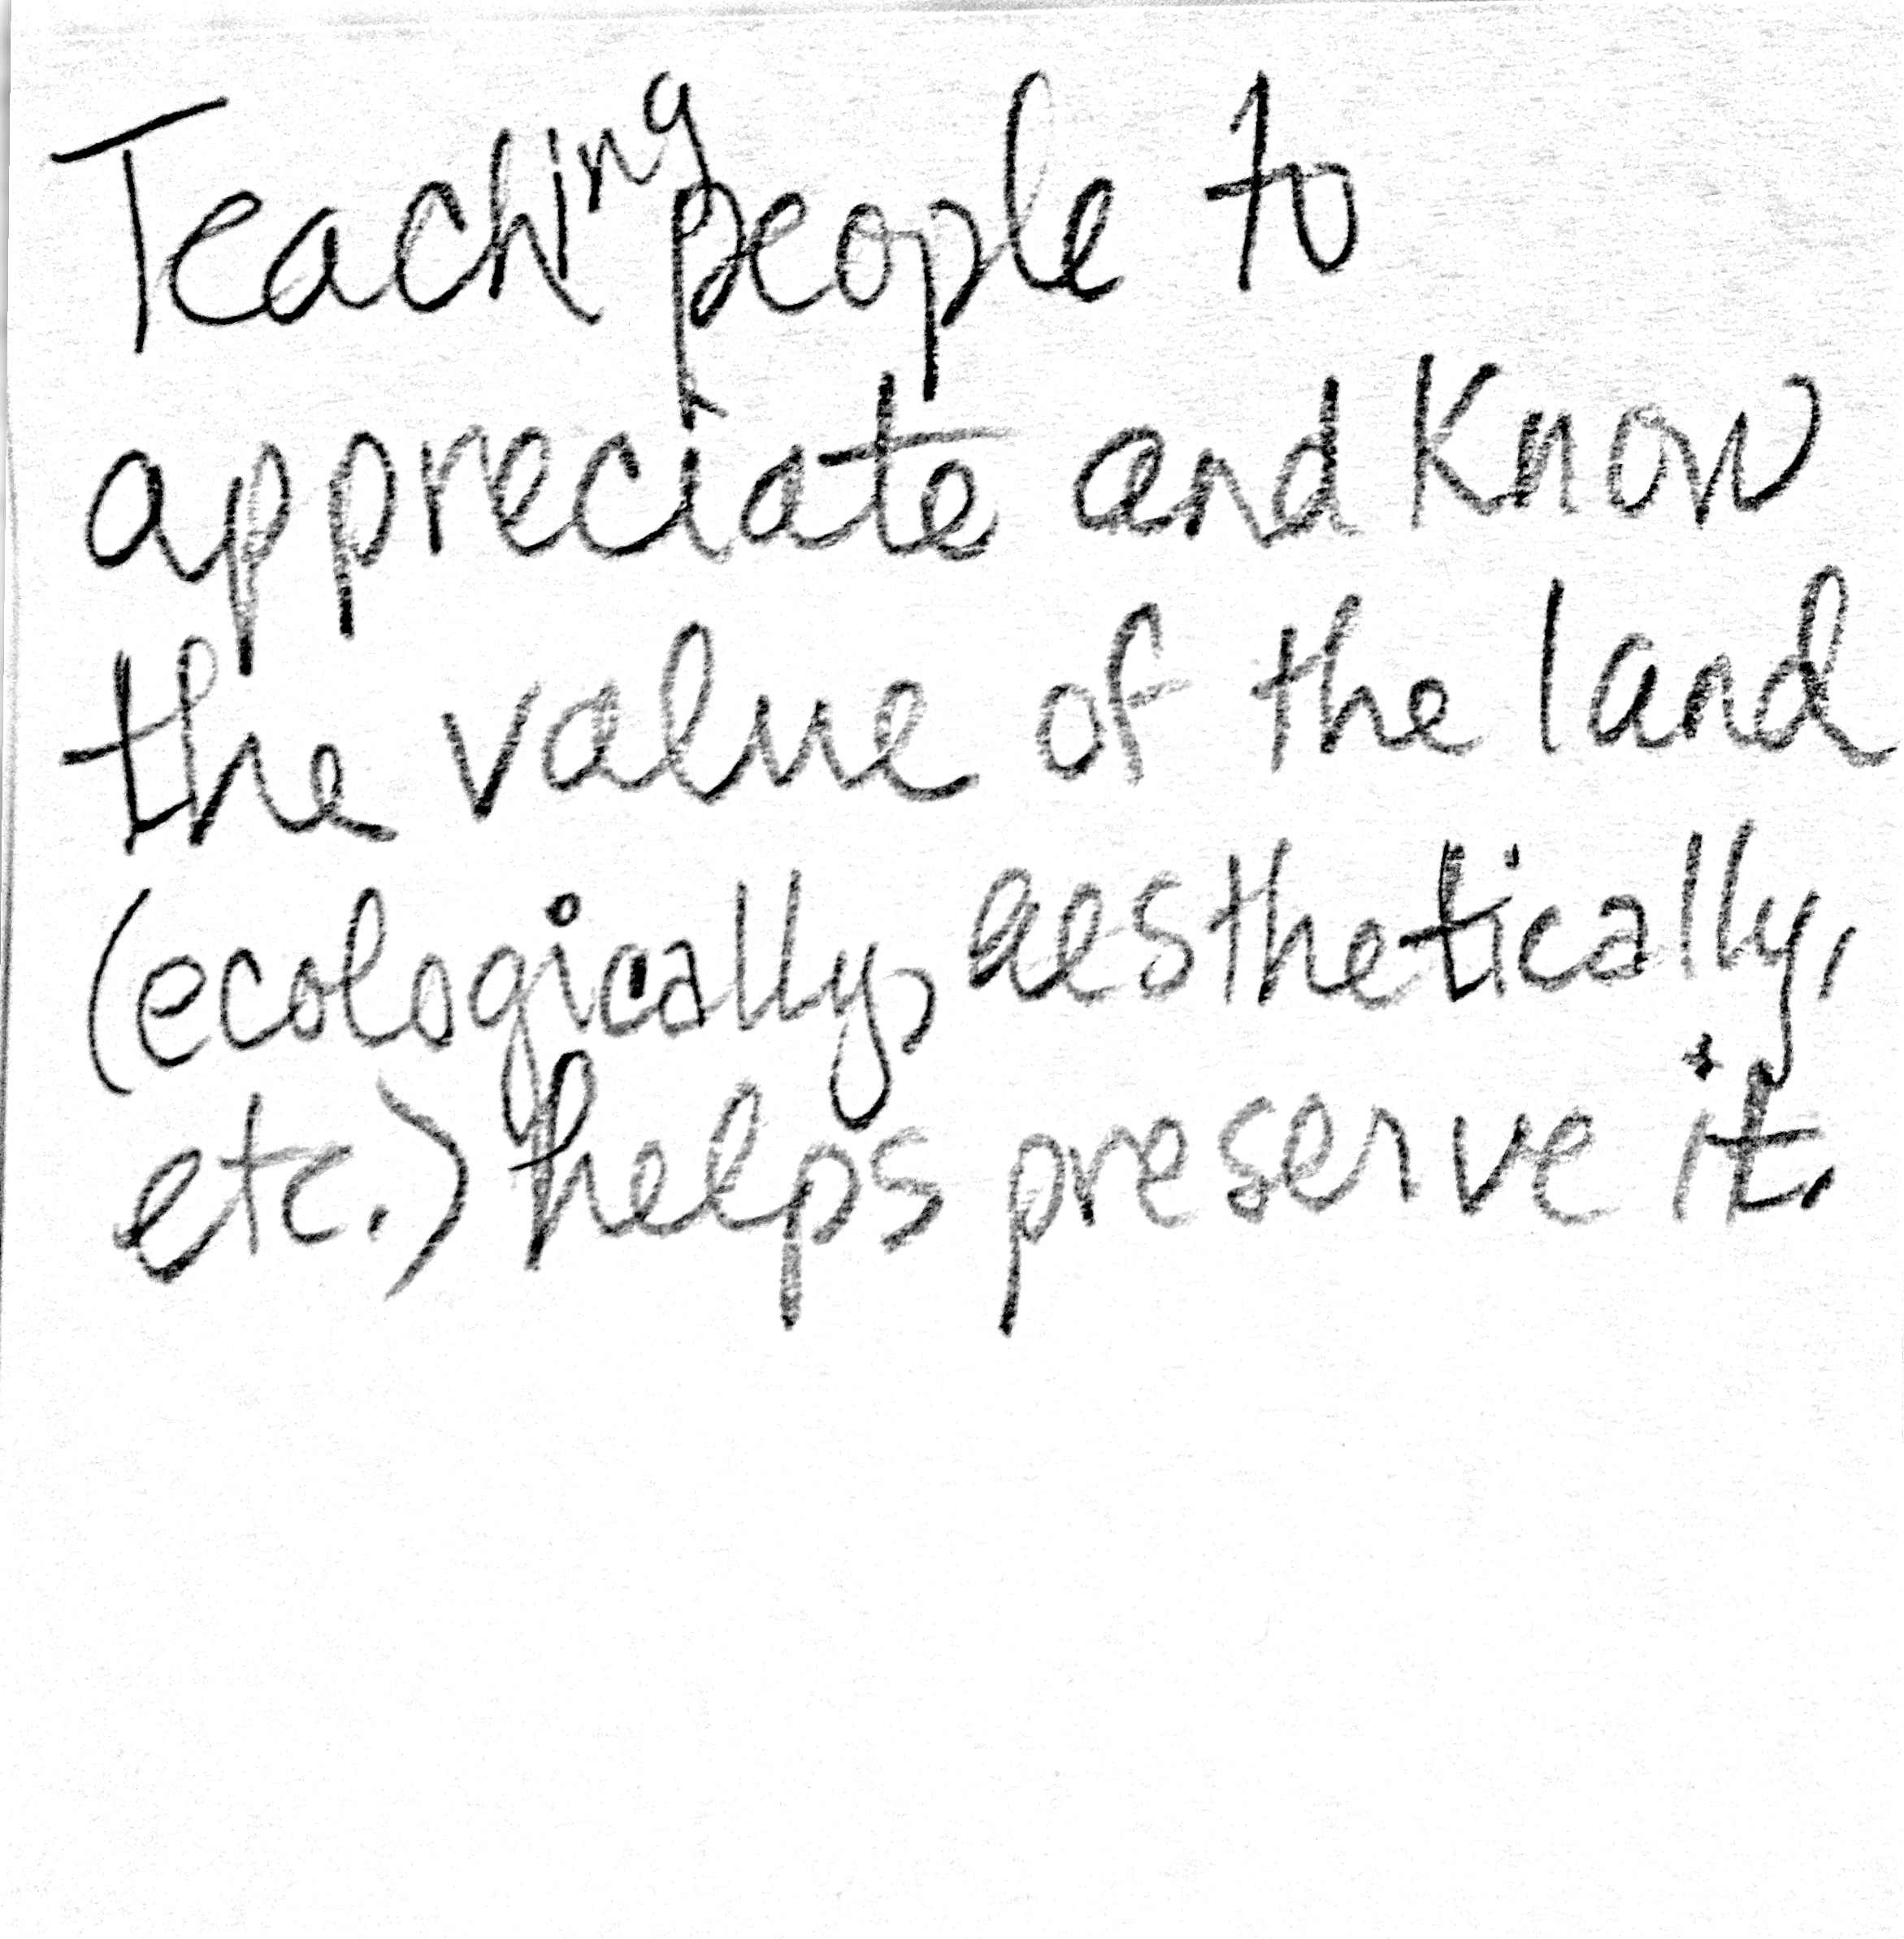 Teaching people to
appreciate and know
the value of the land
(ecologically, aesthetically,
etc.) helps preserve it.